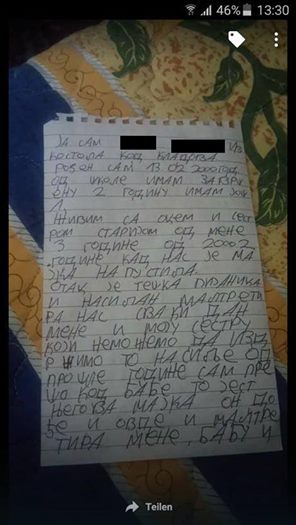 46% 13:30
ЈА САМ ИЗ
КОСТОЛА КОД КЛАДОВА
РОЂЕН САМ 13.02.2000 ГОД
ОД ШКОЛЕ ИМАМ ЗАВРШ
ЕНУ 2 ГОДИНУ ИМАМ ЈОШ
1.
ЖИВИМ СА ОЦЕМ И СЕСТ
РОМ СТАРИЈОМ ОД МЕНЕ
3 ГОДИНЕ ОД 2000 2
ГОДИНЕ КАД НАС ЈЕ МА
ЈКА НАПУСТИЛА.
ОТАЦ ЈЕ ТЕШКА ПИЈАНИЦА
И НАСИЛАН МАЛТРЕТИ
РА НАС СВАКИ ДАН
МЕНЕ И МОЈУ СЕСТРУ
КОЈИ НЕМОЖЕМО ДА ИЗД
РЖИМО ТО НАСИЉЕ ОД
ПРОШЛЕ ГОДИНЕ САМ ПРЕ
ШО КОД БАБЕ ТО ЈЕСТ
ЊЕГОВА МАЈКА ОН ДО
ЂЕ И ОВДЕ И МАЛТРЕ
ТИРА МЕНЕ, БАБУ И
Teilen